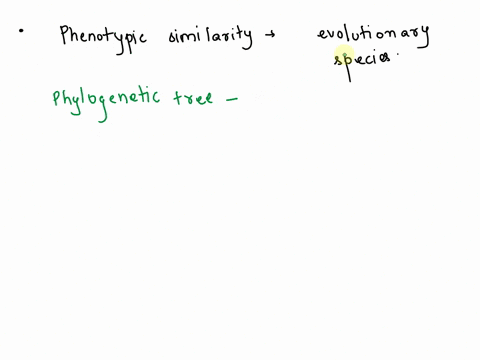 • Phenotypic similarity → evolutionary
species.
Phylogenetic tree –